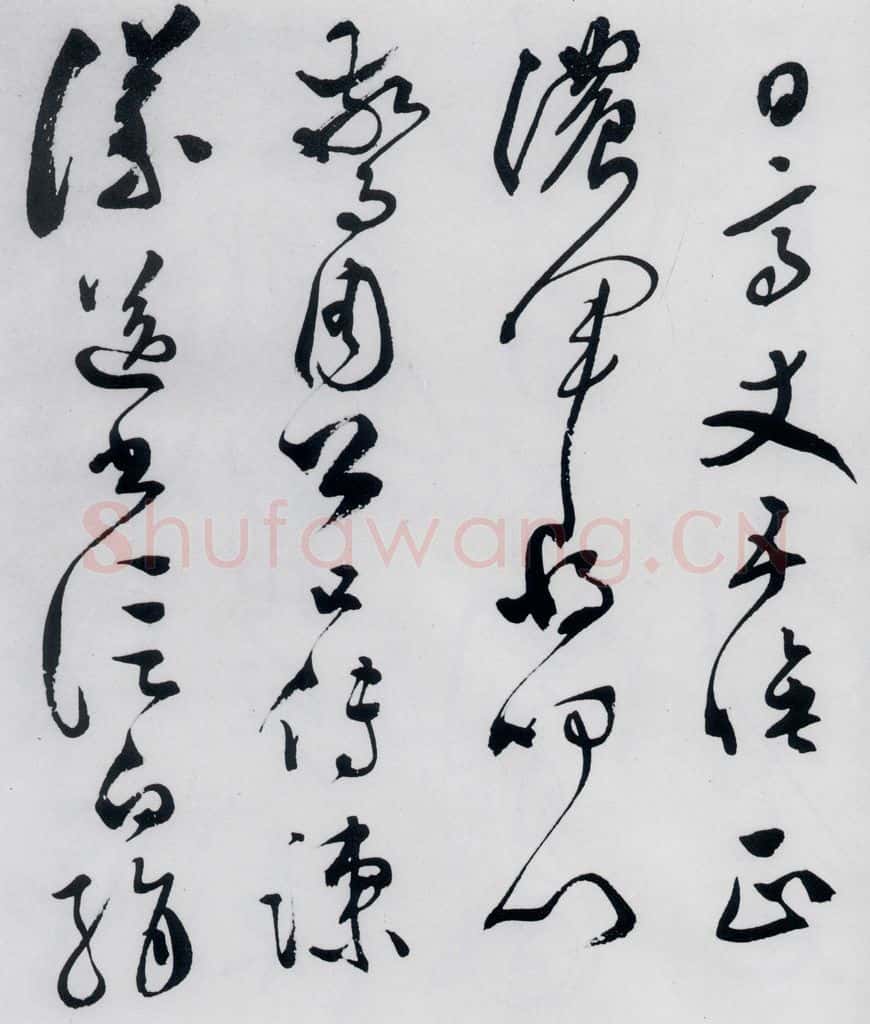 日高丈五睡正
濃軍將叩門
驚周公口傳諫
議送書信白絹
Shufawang.CN